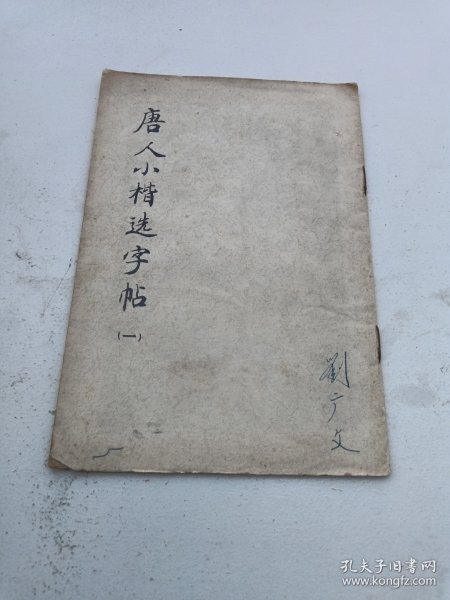 唐人小楷选字帖
(一)
劉广文
孔夫子旧书网
www.kongfz.com